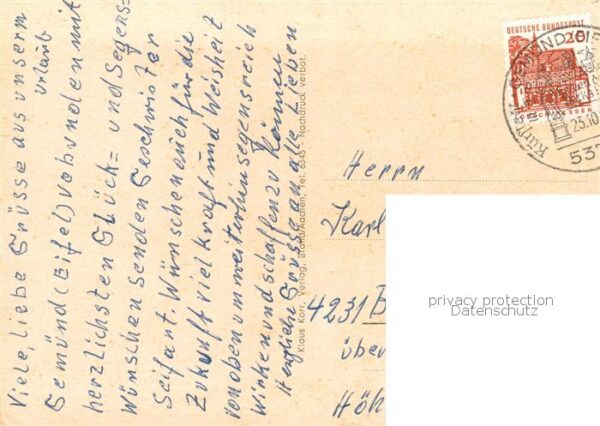 Viele, liebe Grüsse aus unserm
Urlaub
Gemünd (Eifel) verbunden mit
herzlichsten Glück= und Segens=
Wünschen senden Geschwister
Seifart. Wünschen auch für die
Zukunft viel Kraft und Weisheit
von oben um weiterhin segensreich
Wirken und schaffen zu können
Herzliche Grüsse an alle Lieben
Klaus Korr, Verlag, Brand/Aachen, Tel. 6345 - Nachdruck verbot.
DEUTSCHE BUNDESPOST
20
LORSCH/HESSEN
GEMÜND (EIFEL)
23.10.
537
Herrn
Karl
4231 B
über
Höh
privacy protection
Datenschutz